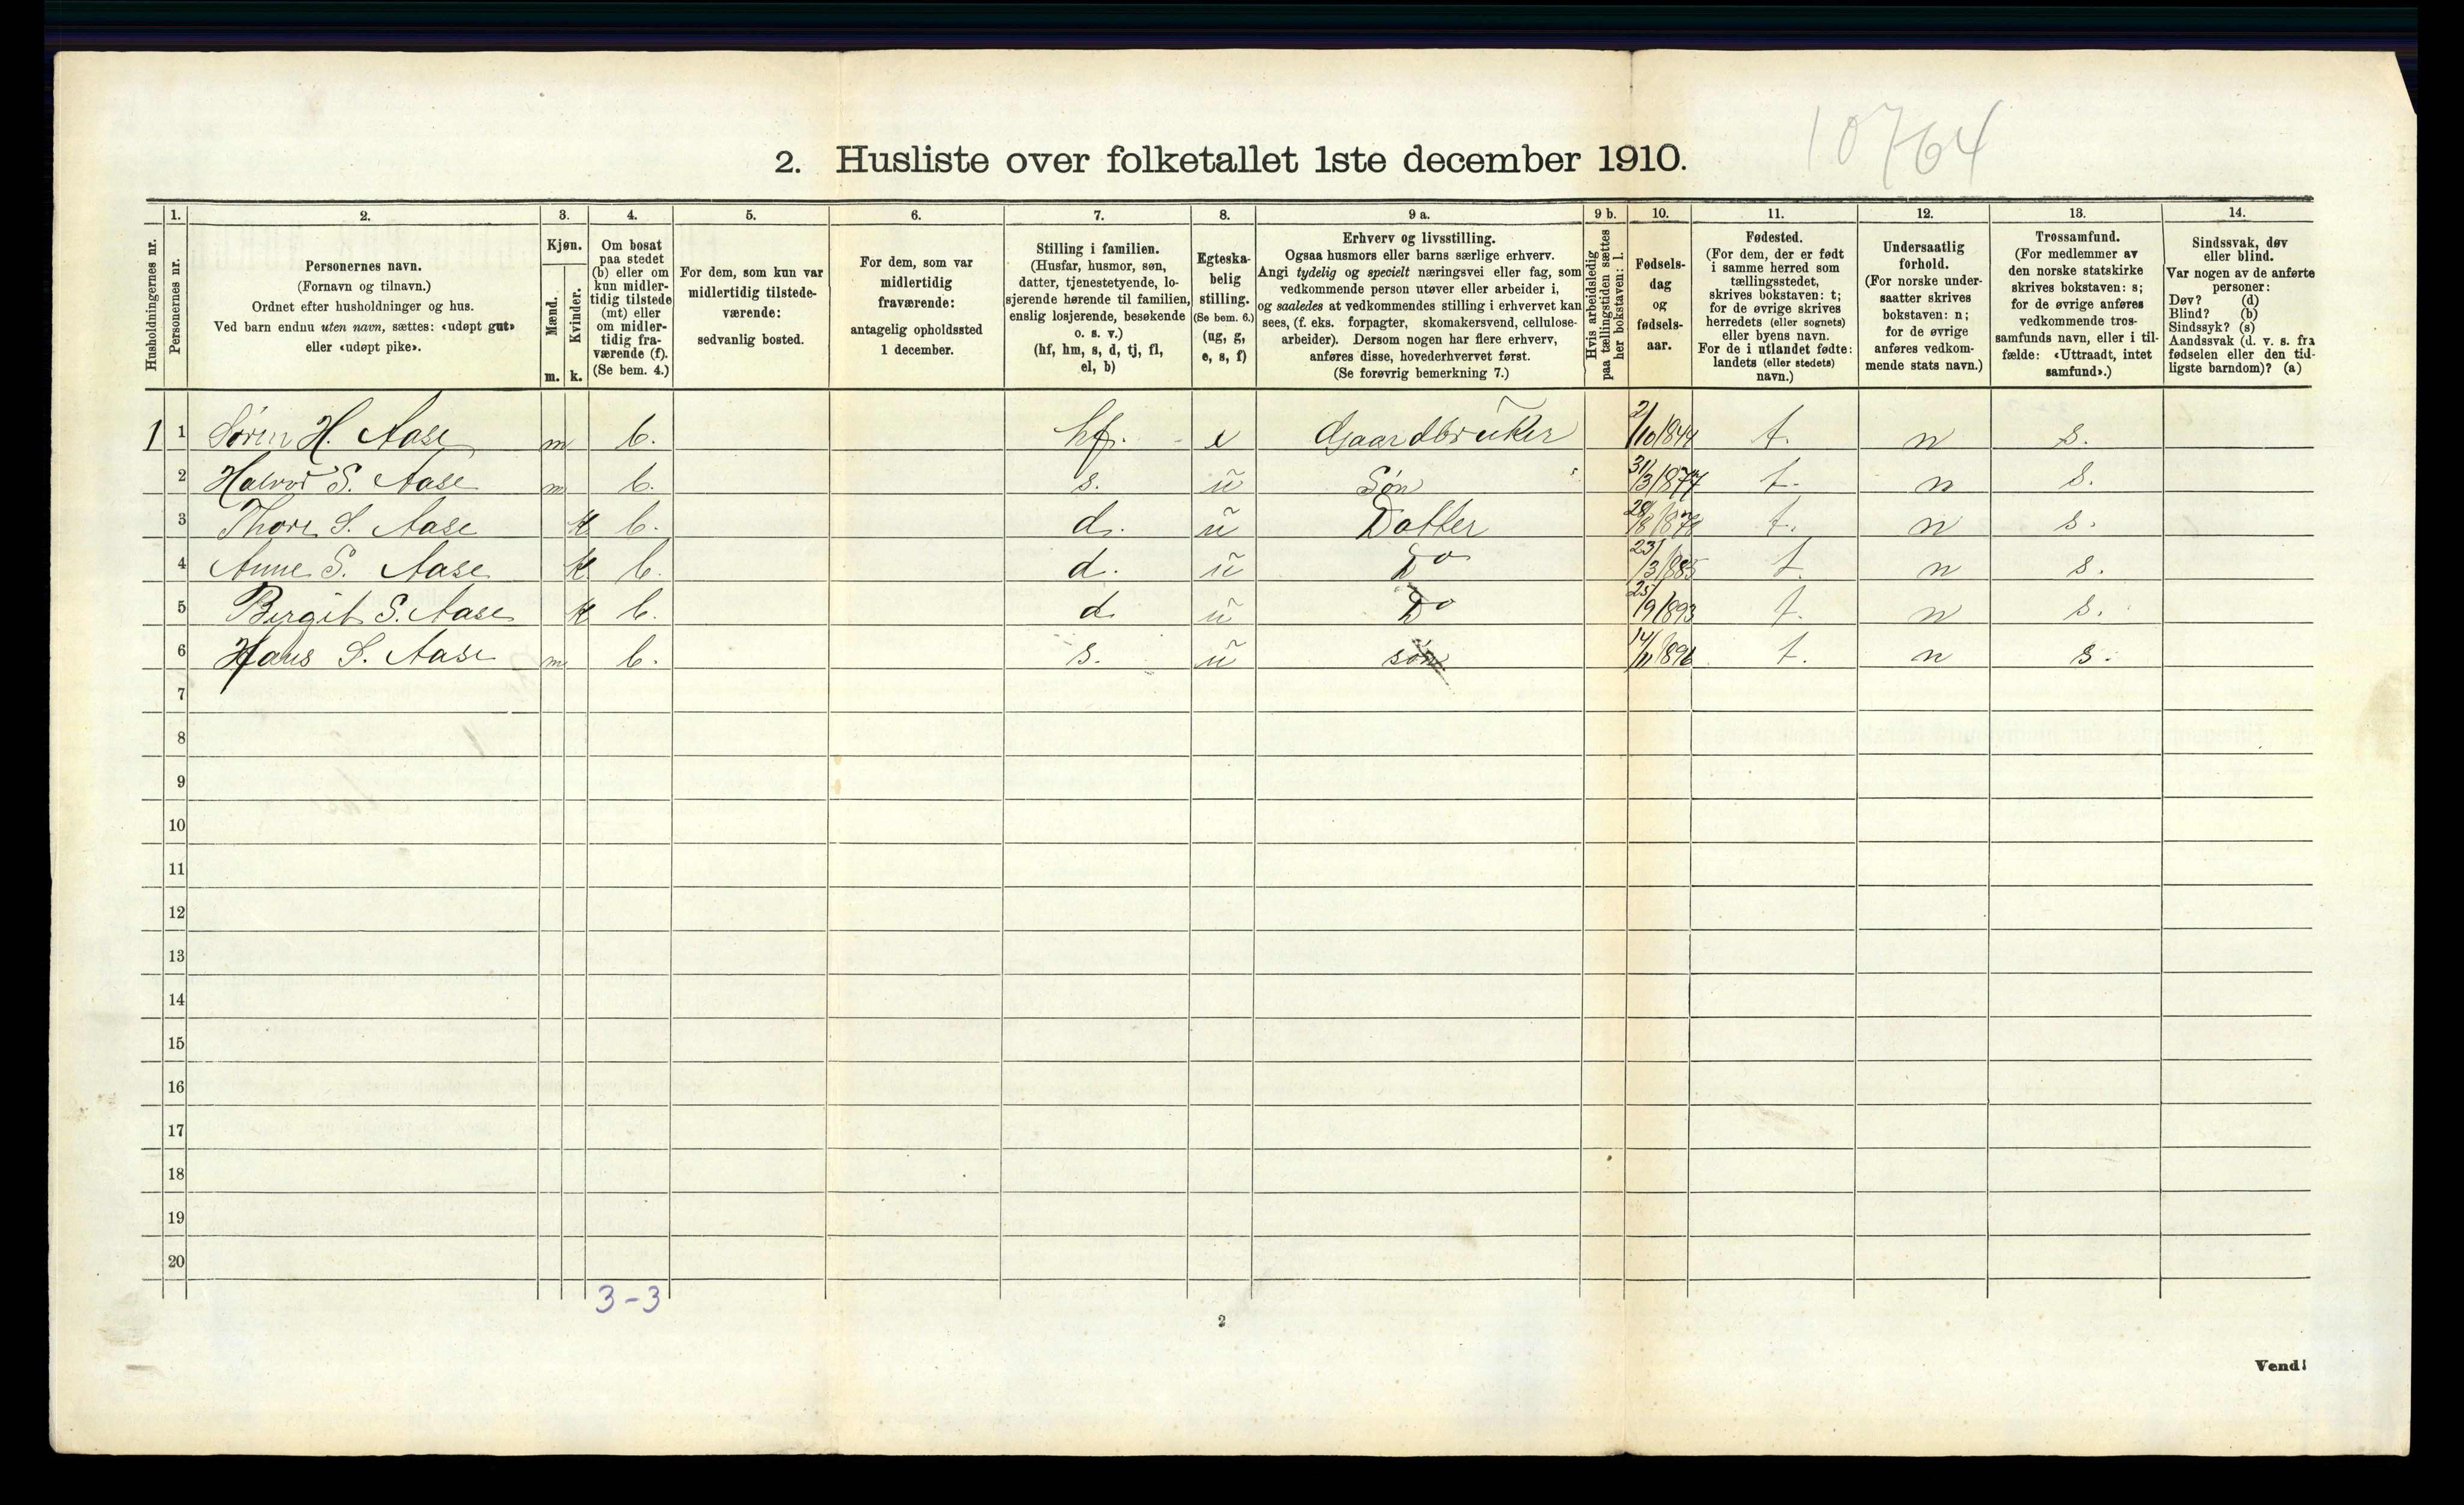 10764
2. Husliste over folketallet 1ste december 1910.
1. 2. 3. 4. 5. 6. 7. 8. 9 a. 9 b. 10. 11. 12. 13. 14.
Husholdningernes nr.
Personernes nr.
Personernes navn.
(Fornavn og tilnavn.)
Ordnet efter husholdninger og hus.
Ved barn endnu uten navn, sættes: «udøpt gut»
eller «udøpt pike».
Kjøn.
Mænd.
Kvinder.
m. k.
Om bosat
paa stedet
(b) eller om
kun midler-
tidig tilstede
(mt) eller
om midler-
tidig fra-
værende (f).
(Se bem. 4.)
For dem, som kun var
midlertidig tilstede-
værende:
sedvanlig bosted.
For dem, som var
midlertidig
fraværende:
antagelig opholdssted
1 december.
Stilling i familien.
(Husfar, husmor, søn,
datter, tjenestetyende, lo-
sjerende hørende til familien,
enslig losjerende, besøkende
o. s. v.)
(hf, hm, s, d, tj, fl,
el, b)
Egteska-
belig
stilling.
(Se bem. 6.)
(ug, g,
e, s, f)
Erhverv og livsstilling.
Ogsaa husmors eller barns særlige erhverv.
Angi tydelig og specielt næringsvei eller fag, som
vedkommende person utøver eller arbeider i,
og saaledes at vedkommendes stilling i erhvervet kan
sees, (f. eks. forpagter, skomakersvend, cellulose-
arbeider). Dersom nogen har flere erhverv,
anføres disse, hovederhvervet først.
(Se forøvrig bemerkning 7.)
Hvis arbeidsledig
paa tællingstiden sættes
her bokstaven: l.
Fødsels-
dag
og
fødsels-
aar.
Fødested.
(For dem, der er født
i samme herred som
tællingsstedet,
skrives bokstaven: t;
for de øvrige skrives
herredets (eller sognets)
eller byens navn.
For de i utlandet fødte:
landets (eller stedets)
navn.)
Undersaatlig
forhold.
(For norske under-
saatter skrives
bokstaven: n;
for de øvrige
anføres vedkom-
mende stats navn.)
Trossamfund.
(For medlemmer av
den norske statskirke
skrives bokstaven: s;
for de øvrige anføres
vedkommende tros-
samfunds navn, eller i til-
fælde: «Uttraadt, intet
samfund».)
Sindssvak, døv
eller blind.
Var nogen av de anførte
personer:
Døv? (d)
Blind? (b)
Sindssyk? (s)
Aandssvak (d. v. s. fra
fødselen eller den tid-
ligste barndom)? (a)
1 1 Sören H. Aase m b. hf. e Gaardbruker 2/10 1844 t. n s.
2 Halvor S. Aase m b. s. u Søn 31/3 1877 t. n s.
3 Thore S. Aase k b. d. u Datter 28/8 1878 t. n s.
4 Anne S. Aase k b. d. u Do 23/3 1885 t. n s.
5 Birgit S. Aase k b. d u Do 25/9 1893 t. n s.
6 Hans S. Aase m b. s. u søn 14/11 1896 t. n s.
7
8
9
10
11
12
13
14
15
16
17
18
19
20
3-3
2
Vend!